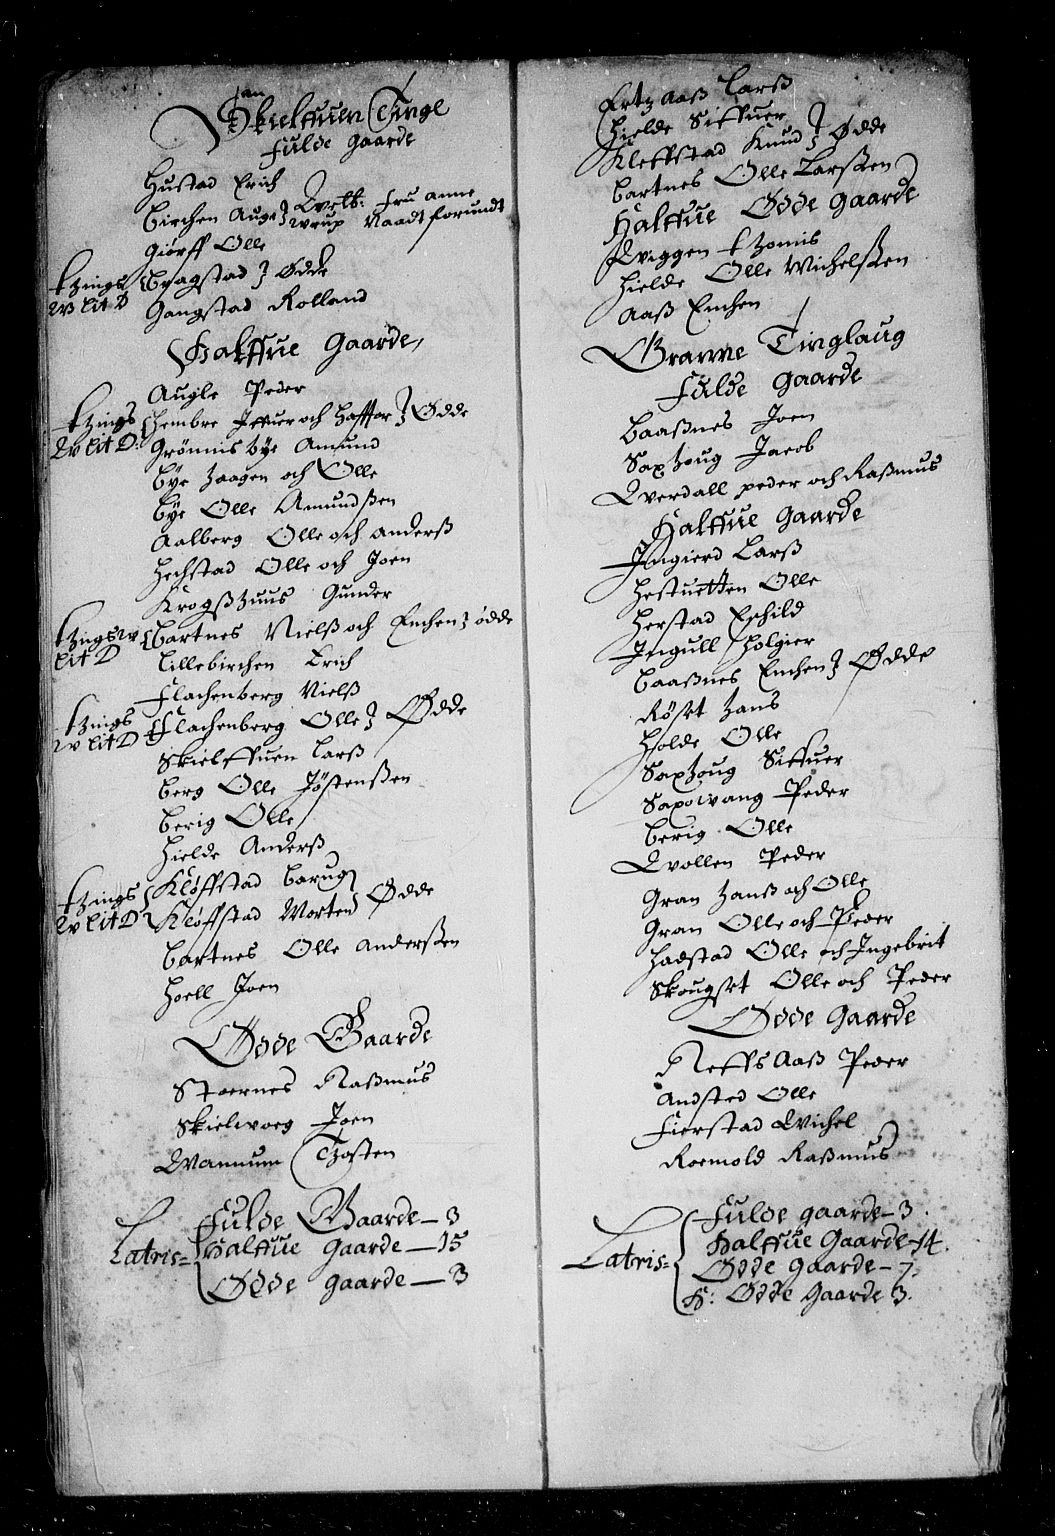 an
Skielffuen Tinge
Fulde Gaarde
Hustad Erich
Birchen Auge } Qvelt: Fru Anne
wrup Naadt forundt
Giørff Olle
tzings { Bragstad } Ødde
w lit D
Gangstad Rolland
Halffue Gaarde
Augle Peder
tzings { Hembre Iffuer och Haffor } Ødde
w lit D: Grønnis bÿe Amund
Bÿe Haagen och Olle
Bÿe Olle Amundßen
Aalberg Olle och Anderß
Hechstad Olle och Joen
Krogßhuus Gunder
tzings w { Bartnes Nielß och Enchen } ødde
lit D
Lillebirchen Erich
Flachenberg Nielß
tzings { Flachenberg Olle } Ødde
w lit D
Skielffuen Larß
Berg Olle Jöstenßen
Berig Olle
Hielde Anderß
tzings { Kløffstad Barug
w lit D { Kløffstad Morten } Ødde
Bartnes Olle Anderßen
Hoell Joen
Ødde Gaarde
Stoernes Raßmus
Skielwoeg Joen
Wannum Thosten
Latris= { Fulde Gaarde — 3
Halffue Gaarde — 15
Ødde Gaarde — 3
Aaß Larß
Hielde Siffuer
Kleffstad Knud } Ødde
Bartnes Olle Larßen
Halffue Ødde Gaarde
Qviggen Thomis
Hielde Olle Michelßen
Aaß Enchen
Granne Tinglaug
Fulde Gaarde
Baaßnes Joen
Saxhoug Jacob
Qverdall peder och Raßmus
Halffue Gaarde
Ingierd Larß
Hestuetten Olle
Herstad Eschild
Ingull Holgier
Baaßnes Enchen } Ødde
Røszt Hans
Holde Olle
Saxhoug Siffuer
Saxowang Peder
Berig Olle
Qvollen Peder
Gran Hanß och Olle
Gran Olle och Peder
Hadstad Olle och Ingebrit
Skougszt Olle och Peder
Ødde Gaarde
Reffs Aaß Peder
Andsted Olle
Fierstad Michel
Roemold Raßmus
Latris= { Fulde gaarde — 3.
Halffue Gaarde — 14.
Ødde Gaarde — 7.
H: Ødde Gaarde 3.